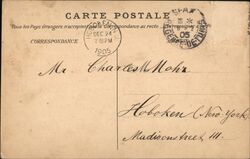 CARTE POSTALE
Tous les Pays étrangers n'acceptent pas la correspondance au recto
CORRESPONDANCE
DEC 24
1905
05
Mr. Charles Mohr
Hoboken (New York)
Madisonstreet 111.